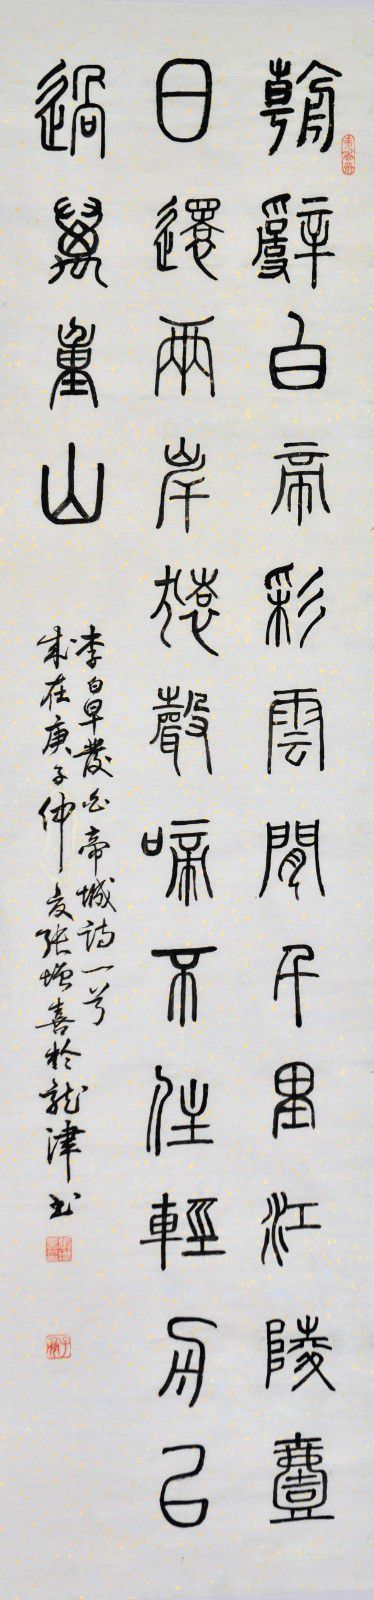 朝辭白帝彩雲間千里江陵壹
日還兩岸猿聲啼不住輕舟已
過萬重山
李白早發白帝城詩一首
歲在庚子仲夏張增喜於龍津書